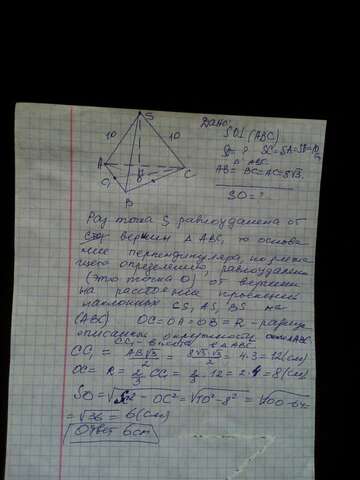 S
Дано:
SO⊥(ABC)
10 10
SC=SA=SB=10
A
C
AB=BC=AC=8√3
B
SO=?
Раз точка S равноудалена от
вершин Δ ABC, то основа-
ние перпендикуляра,
равноудалено
(это точка O) от вершин
на расстояние проекций
наклонных CS, AS, BS на
(ABC) OC=OA=OB=R - радиус
описанной окружности ABC
CC₁ - высота Δ ABC
CC₁ = AB√3/2 = 8√3·√3/2 = 4·3=12(см)
OC = R = 2/3 CC₁ = 2/3 · 12 = 2·4=8(см)
SO = √SC²-OC² = √10²-8² = √100-64 =
= √36 = 6(см)
Ответ 6см